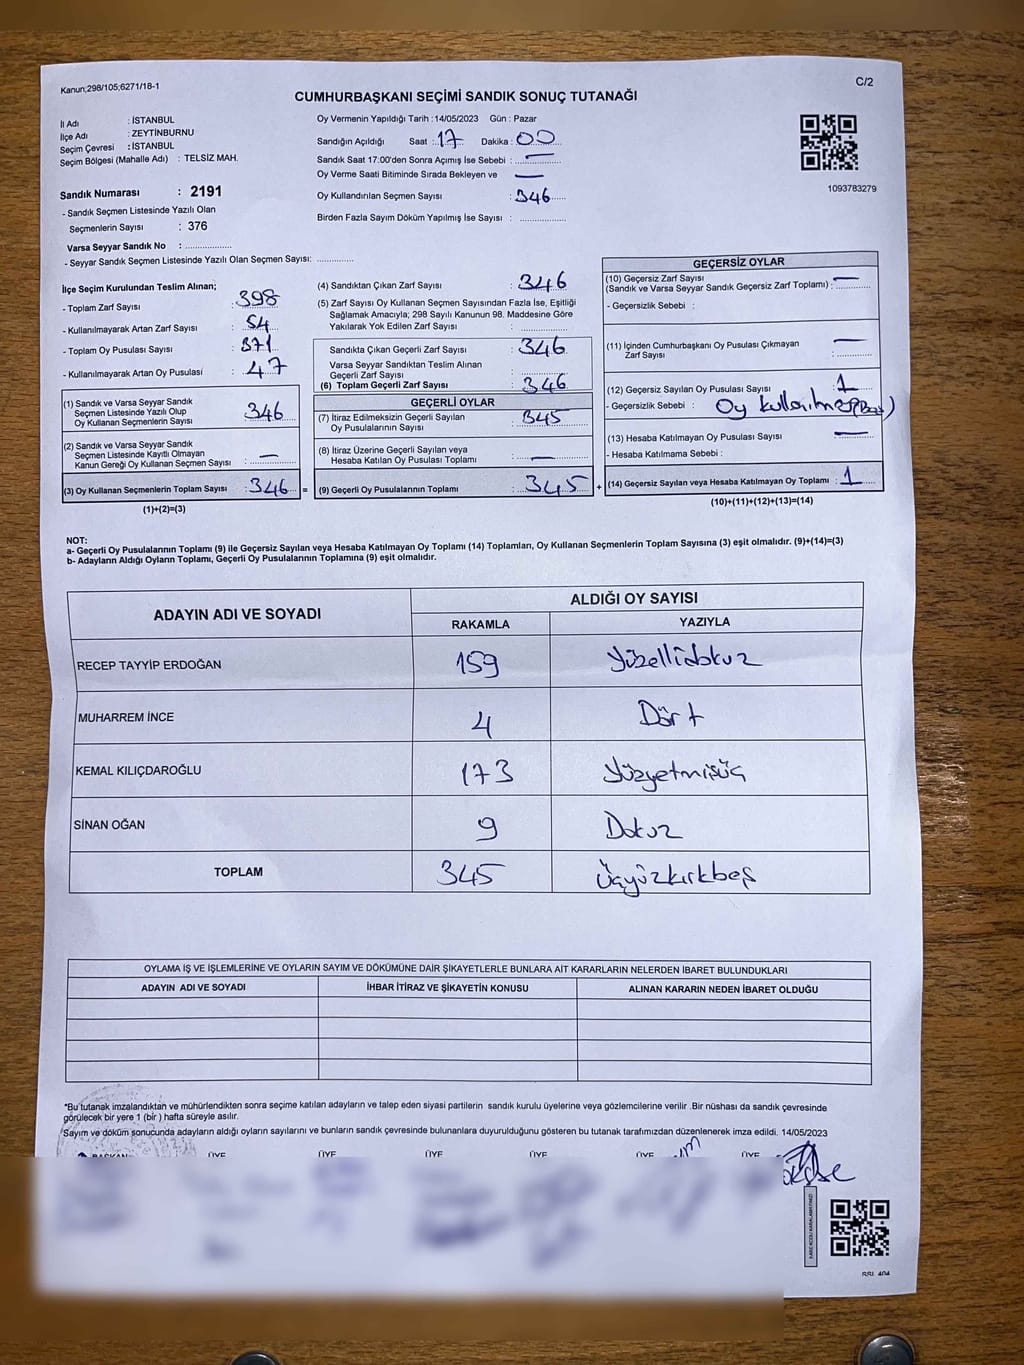 Kanun;298/105;6271/18-1
C/2
CUMHURBAŞKANI SEÇİMİ SANDIK SONUÇ TUTANAĞI
İl Adı : İSTANBUL
İlçe Adı : ZEYTİNBURNU
Seçim Çevresi : İSTANBUL
Seçim Bölgesi (Mahalle Adı) : TELSİZ MAH.
Sandık Numarası : 2191
- Sandık Seçmen Listesinde Yazılı Olan
Seçmenlerin Sayısı : 376
Varsa Seyyar Sandık No : ..................
- Seyyar Sandık Seçmen Listesinde Yazılı Olan Seçmen Sayısı: ..............
Oy Vermenin Yapıldığı Tarih : 14/05/2023 Gün : Pazar
Sandığın Açıldığı Saat : 17 Dakika : 00
Sandık Saat 17:00'den Sonra Açımış İse Sebebi : —
Oy Verme Saati Bitiminde Sırada Bekleyen ve —
Oy Kullandırılan Seçmen Sayısı : 346
Birden Fazla Sayım Döküm Yapılmış İse Sayısı : ..............
1093783279
İlçe Seçim Kurulundan Teslim Alınan;
- Toplam Zarf Sayısı : 398
- Kullanılmayarak Artan Zarf Sayısı : 54
- Toplam Oy Pusulası Sayısı : 371
- Kullanılmayarak Artan Oy Pusulası : 47
(1) Sandık ve Varsa Seyyar Sandık
Seçmen Listesinde Yazılı Olup
Oy Kullanan Seçmenlerin Sayısı : 346
(2) Sandık ve Varsa Seyyar Sandık
Seçmen Listesinde Kayıtlı Olmayan
Kanun Gereği Oy Kullanan Seçmen Sayısı : —
(3) Oy Kullanan Seçmenlerin Toplam Sayısı : 346 =
(1)+(2)=(3)
(4) Sandıktan Çıkan Zarf Sayısı : 346
(5) Zarf Sayısı Oy Kullanan Seçmen Sayısından Fazla İse, Eşitliği
Sağlamak Amacıyla; 298 Sayılı Kanunun 98. Maddesine Göre
Yakılarak Yok Edilen Zarf Sayısı : ..............
Sandıkta Çıkan Geçerli Zarf Sayısı : 346
Varsa Seyyar Sandıktan Teslim Alınan
Geçerli Zarf Sayısı : ..............
(6) Toplam Geçerli Zarf Sayısı : 346
GEÇERLİ OYLAR
(7) İtiraz Edilmeksizin Geçerli Sayılan
Oy Pusulasının Sayısı : 345
(8) İtiraz Üzerine Geçerli Sayılan veya
Hesaba Katılan Oy Pusulası Toplamı : —
(9) Geçerli Oy Pusulalarının Toplamı : 345 +
GEÇERSİZ OYLAR
(10) Geçersiz Zarf Sayısı
(Sandık ve Varsa Seyyar Sandık Geçersiz Zarf Toplamı) : —
- Geçersizlik Sebebi :
(11) İçinden Cumhurbaşkanı Oy Pusulası Çıkmayan —
Zarf Sayısı : ..............
(12) Geçersiz Sayılan Oy Pusulası Sayısı : 1
- Geçersizlik Sebebi : Oy
(13) Hesaba Katılmayan Oy Pusulası Sayısı : —
- Hesaba Katılmama Sebebi :
(14) Geçersiz Sayılan veya Hesaba Katılmayan Oy Toplamı : 1
(10)+(11)+(12)+(13)=(14)
NOT:
a- Geçerli Oy Pusulalarının Toplamı (9) ile Geçersiz Sayılan veya Hesaba Katılmayan Oy Toplamı (14) Toplamları, Oy Kullanan Seçmenlerin Toplam Sayısına (3) eşit olmalıdır. (9)+(14)=(3)
b- Adayların Aldığı Oyların Toplamı, Geçerli Oy Pusulalarının Toplamına (9) eşit olmalıdır.
ADAYIN ADI VE SOYADI
ALDIĞI OY SAYISI
RAKAMLA YAZIYLA
RECEP TAYYİP ERDOĞAN 159 Yüzellidokuz
MUHARREM İNCE 4 Dört
KEMAL KILIÇDAROĞLU 173 Yüzyetmişüç
SİNAN OĞAN 9 Dokuz
TOPLAM 345 Üçyüzkırkbeş
OYLAMA İŞ VE İŞLEMLERİNE VE OYLARIN SAYIM VE DÖKÜMÜNE DAİR ŞİKAYETLERLE BUNLARA AİT KARARLARIN NELERDEN İBARET BULUNDUKLARI
ADAYIN ADI VE SOYADI İHBAR İTİRAZ VE ŞİKAYETİN KONUSU ALINAN KARARIN NEDEN İBARET OLDUĞU
*Bu tutanak imzalandıktan ve mühürlendikten sonra seçime katılan adayların ve talep eden siyasi partilerin sandık kurulu üyelerine veya gözlemcilerine verilir .Bir nüshası da sandık çevresinde
görülecek bir yere 1 (bir ) hafta süreyle asılır.
Sayım ve döküm sonucunda adayların aldığı oyların sayılarını ve bunların sandık çevresinde bulunanlara duyurulduğunu gösteren bu tutanak tarafımızdan düzenlenerek imza edildi. 14/05/2023
BAŞKAN ÜYE ÜYE ÜYE ÜYE ÜYE ÜYE